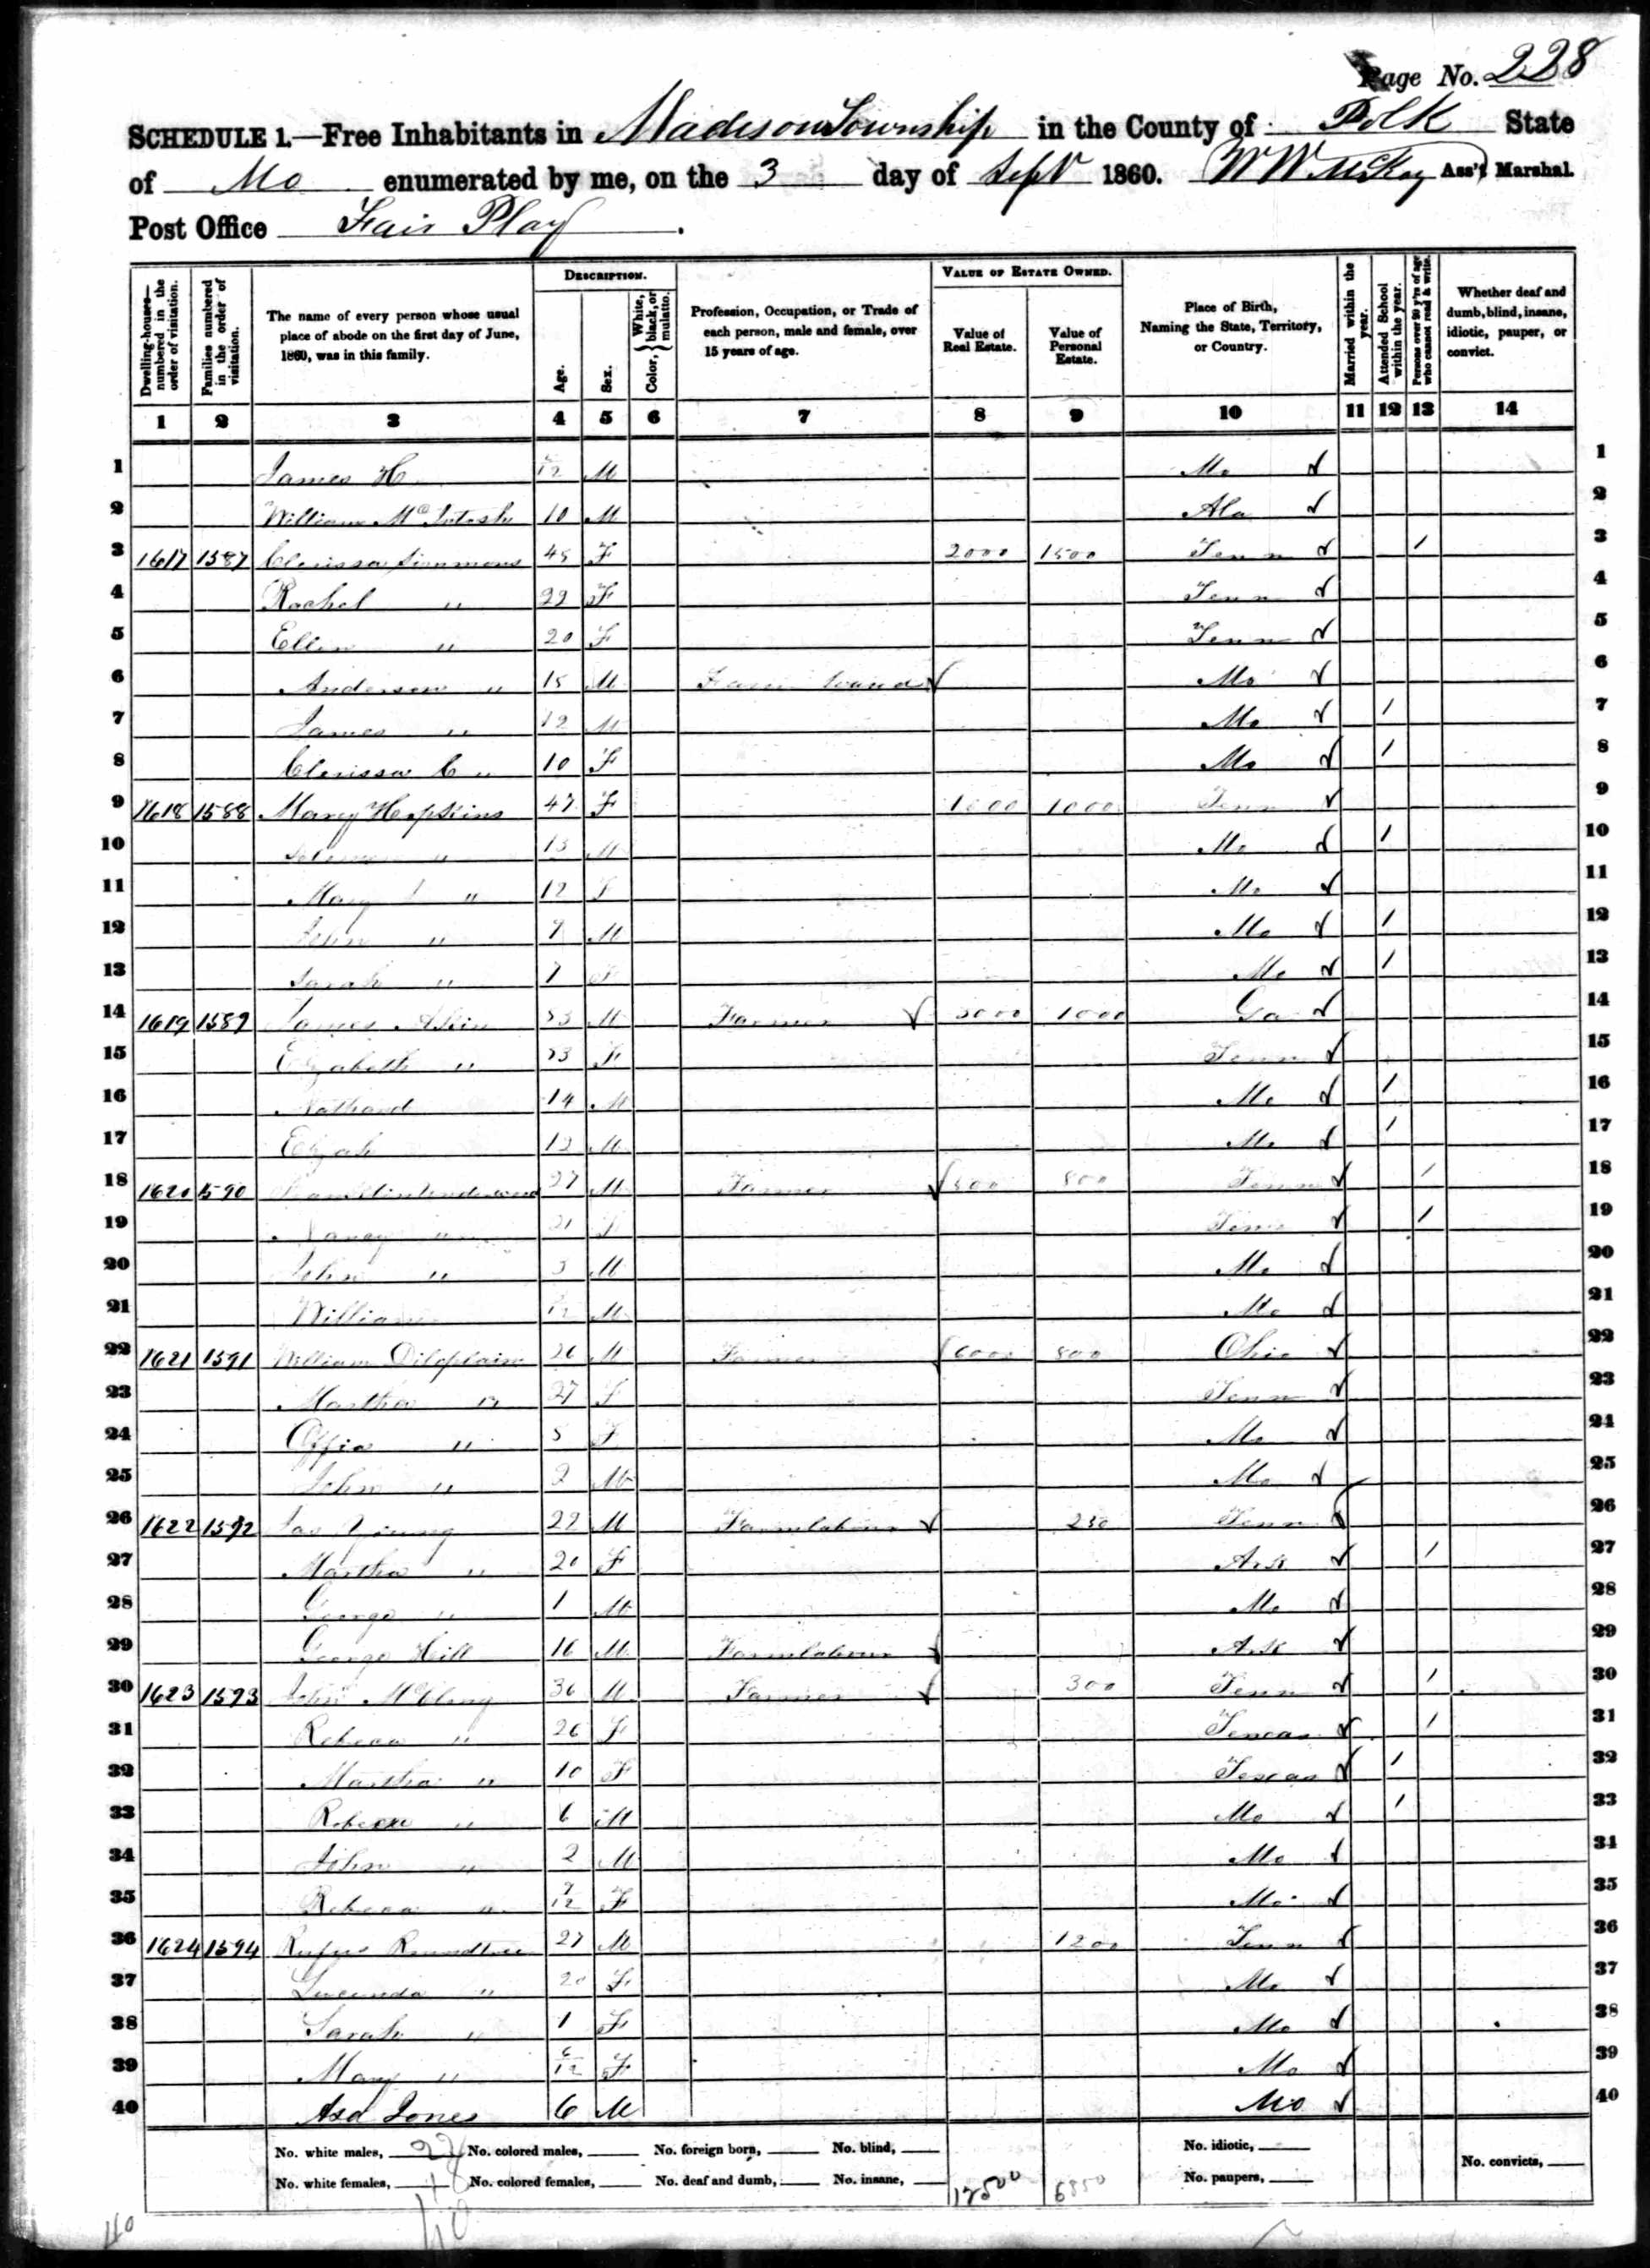 Page No. 228
SCHEDULE 1.—Free Inhabitants in Madison Township in the County of Polk State
of Mo enumerated by me, on the 3 day of Sept 1860. W W McKoy Ass't Marshal.
Post Office Fair Play.
Dwelling-houses—numbered in the order of visitation.
Families numbered in the order of visitation.
The name of every person whose usual place of abode on the first day of June, 1860, was in this family.
DESCRIPTION.
Age.
Sex.
Color, { White, black, or mulatto.
Profession, Occupation, or Trade of each person, male and female, over 15 years of age.
VALUE OF ESTATE OWNED.
Value of Real Estate.
Value of Personal Estate.
Place of Birth, Naming the State, Territory, or Country.
Married within the year.
Attended School within the year.
Persons over 20 y'rs of age who cannot read & write.
Whether deaf and dumb, blind, insane, idiotic, pauper, or convict.
1 2 3 4 5 6 7 8 9 10 11 12 13 14
1 James H M Mo 1
2 William McIntosh 10 M Ala 2
3 1617 1587 Clerissa Simmons 45 F 2000 1500 Tenn 1 3
4 Rachel " 22 F Tenn 4
5 Ellen " 20 F Tenn 5
6 Anderson " 15 M Farm hand Mo 6
7 James " 12 M Mo 1 7
8 Clerissa C " 10 F Mo 1 8
9 1618 1588 Mary Hopkins 47 F 1000 1000 Tenn 9
10 " 13 M Mo 1 10
11 Mary " 12 F Mo 11
12 John " 9 M Mo 1 12
13 Sarah " 7 F Mo 1 13
14 1619 1589 James Akin 53 M Farmer 3000 1000 Ga 14
15 Elizabeth " 53 F Tenn 15
16 Nathand 14 M Mo 1 16
17 Elijah 12 M Mo 1 17
18 1620 1590 27 M Farmer 500 800 Tenn 1 18
19 Nancy " 21 F Tenn 1 19
20 John " 3 M Mo 20
21 William M Mo 21
22 1621 1591 William Dilaplain 26 M Farmer 6000 800 Ohio 22
23 Martha " 27 F Tenn 23
24 Offia " 5 F Mo 24
25 John " 2 M Mo 25
26 1622 1592 Jas Young 22 M Farmlabour 250 Tenn 26
27 Martha " 20 F Ark 1 27
28 George " 1 M Mo 28
29 George Hill 16 M Farmlabour Ark 29
30 1623 1593 John McClury 36 M Farmer 300 Tenn 1 30
31 Rebecca " 26 F Texcas 1 31
32 Martha " 10 F Texcas 1 32
33 " 6 M Mo 1 33
34 John " 2 M Mo 34
35 Rebecca " 7/12 F Mo 35
36 1624 1594 Rufus Roundtree 27 M 1200 Tenn 36
37 Lucinda " 20 F Mo 37
38 Sarah " 1 F Mo 38
39 Mary " 6/12 F Mo 39
40 Asa Jones 6 M Mo 40
No. white males, 22 No. colored males, No. foreign born, No. blind, No. idiotic,
No. white females, 18 No. colored females, No. deaf and dumb, No. insane, 12500 6850 No. paupers, No. convicts,
40 40